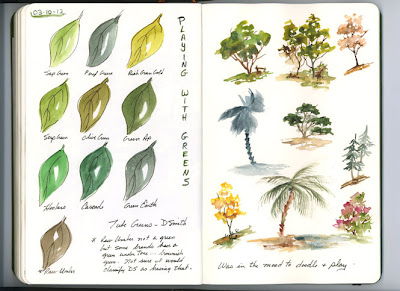 03-10-12
PLAYING WITH GREENS
Sap Green
Peryl Green
Rich Green Gold
Sap Green
Olive Green
Green Ap
Cascade
Green Earth
Raw Umber
Tube Greens - DSmith
* Raw Umber not a green
but some brands have a
green undertone - brownish
green. Not sure I would
classify DS as having that.
Was in the mood to doodle & play.